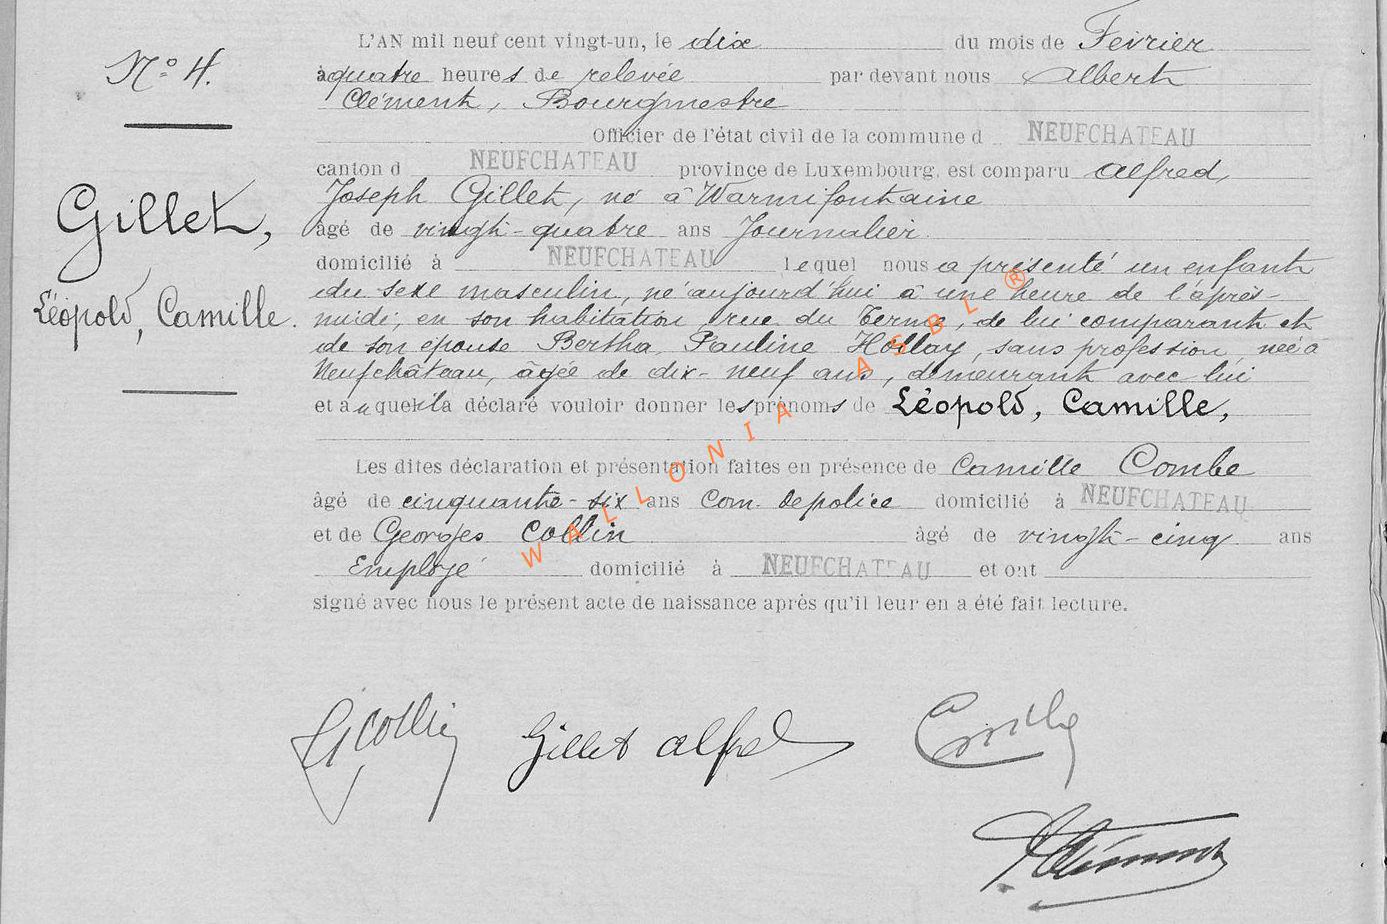 L'AN mil neuf cent vingt-un, le dix du mois de Fevrier
N° 4.
à quatre heures de relevée par devant nous Albert
Clément, Bourgmestre
Officier de l'état civil de la commune d NEUFCHATEAU
canton d NEUFCHATEAU province de Luxembourg, est comparu Alfred,
Joseph Gillet, né à Warmifontaine
Gillet,
âgé de vingt-quatre ans Journalier.
domicilié à NEUFCHATEAU lequel nous a présenté un enfant
du sexe masculin, né aujourd'hui à une heure de l'après-
Léopold, Camille.
midi, en son habitation rue du Terme, de lui comparant et
de son épouse Bertha, Pauline Hollay, sans profession, née à
Neufchâteau, âgée de dix-neuf ans, demeurant avec lui
et auquel il a déclaré vouloir donner les prénoms de Léopold, Camille,
Les dites déclaration et présentation faites en présence de Camille Combe
âgé de cinquante-six ans Com. de police domicilié à NEUFCHATEAU
et de Georges Collin âgé de vingt-cinq ans
Employé domicilié à NEUFCHATEAU et ont
signé avec nous le présent acte de naissance après qu'il leur en a été fait lecture.
WALLONIA ASBL ®
G Collin Gillet Alfred
Clément